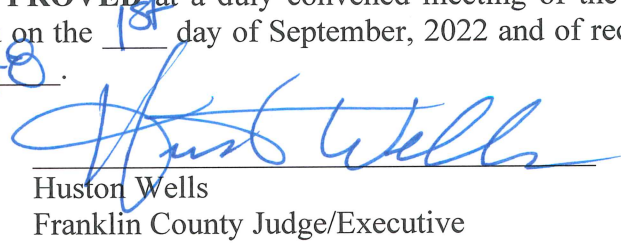 PROVED at a duly convened meeting of the
on the 1st day of September, 2022 and of rec
-8.
Hust Wells
Huston Wells
Franklin County Judge/Executive